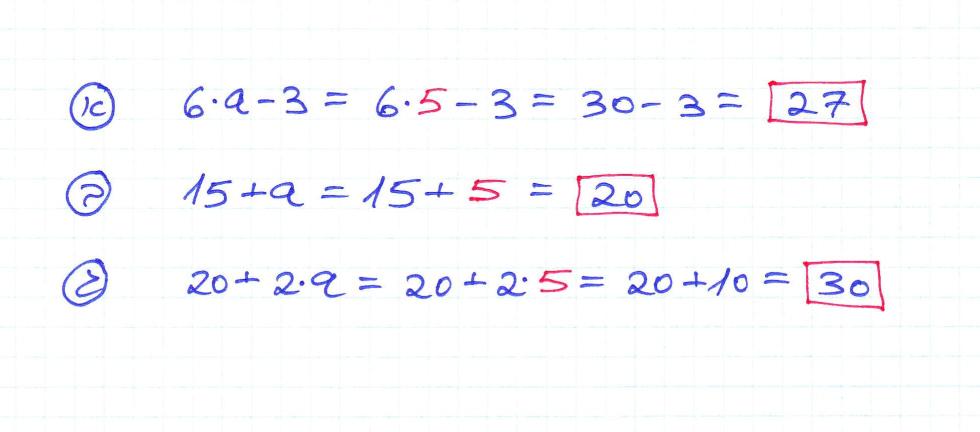 א 6·a-3 = 6·5-3 = 30-3 = 27
ב 15+a = 15+5 = 20
ג 20+2·a = 20+2·5 = 20+10 = 30